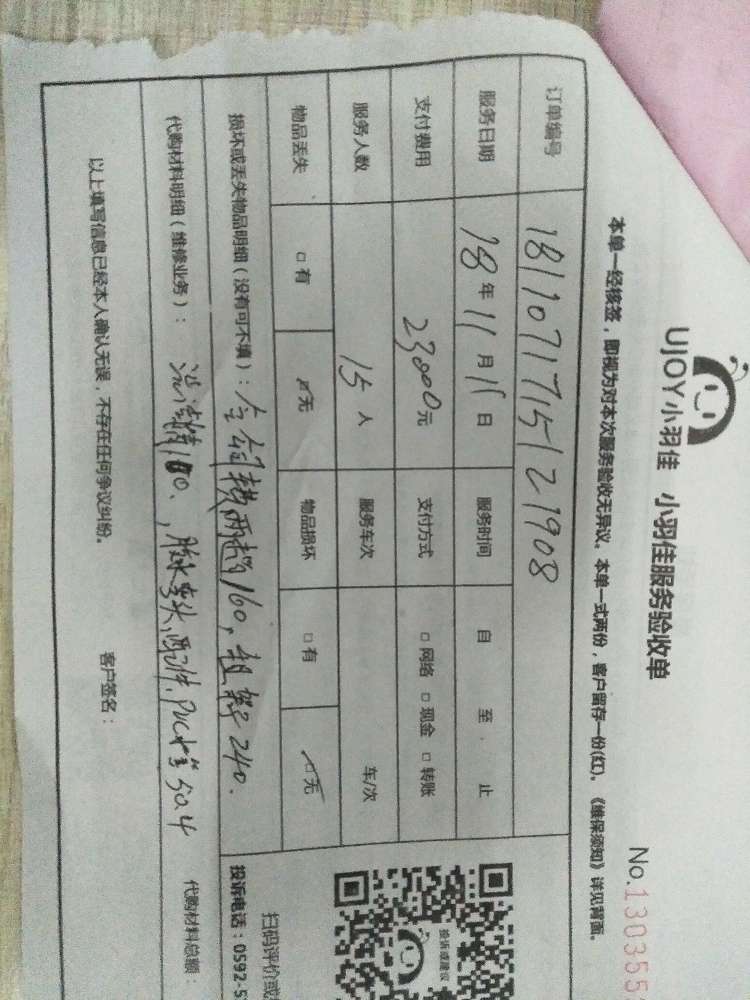 UJOY小羽佳 小羽佳服务验收单
No.130355
本单一经核签，即视为对本次服务验收无异议。本单一式两份，客户留存一份(红)。《维保须知》详见背面。
订单编号 181107171512 1908
服务日期 18年11月15日 服务时间 自 至 止
支付费用 23000元 支付方式 □网络 □现金 □转账
服务人数 15人 服务车次 车/次
物品丢失 □有 □无 物品损坏 □有 □无
损坏或丢失物品明细（没有可不填）：
两趟160, 240.
代购材料明细（维修业务）：
100、, 配件、PVC 504
代购材料总额：
以上填写信息已经本人确认无误，不存在任何争议纠纷。 客户签名：
投诉或建议
扫码评价或
投诉电话：0592-5